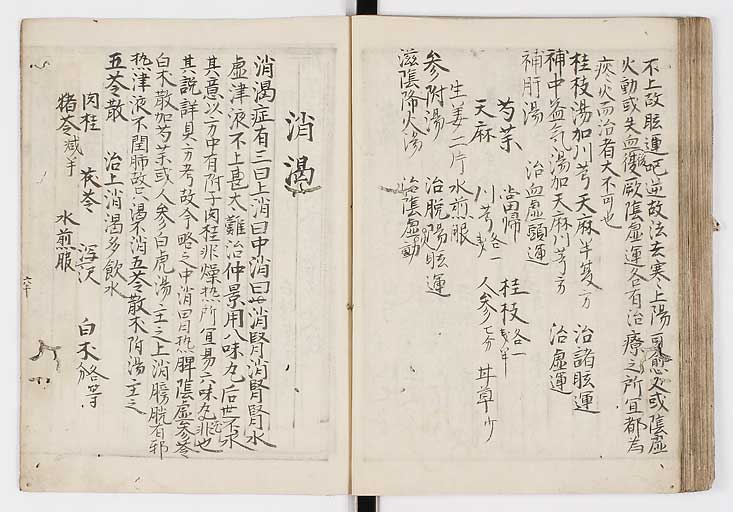 不上故眩運吧逆故法去寒上陽可愈又或陰虛
火動或失血後厥陰虛運各有治療之所宜都為
痰火而治者大不可也
桂枝湯加川芎天麻半夏方 治諸眩運
補中益气湯加天麻川芎方 治虛運
補肝湯 治血虛頭運
芍藥 當帰 桂枝各一戔半
天麻 川芎各一戔 人參七分 甘草少
生姜二片 水煎服
參附湯 治脫陽眩運
滋陰降火湯 治陰虛動
消渴
消渴症有三曰上消曰中消曰消腎消腎腎水
虛津液不上甚大難治仲景用八味丸后世不求
其意以方中有附子肉桂非燥热所宜易六味丸非也
其說詳具方考故今略之中消曰胃热脾陰虛參苓
白朮散加芍藥或人參白虎湯主之上消膀胱有邪
热津液不潤肺故口渴不消五苓散朮附湯主之
五苓散 治上消渴多飲水
肉桂 茯苓 澤瀉 白朮各等
猪苓減半 水煎服
六十